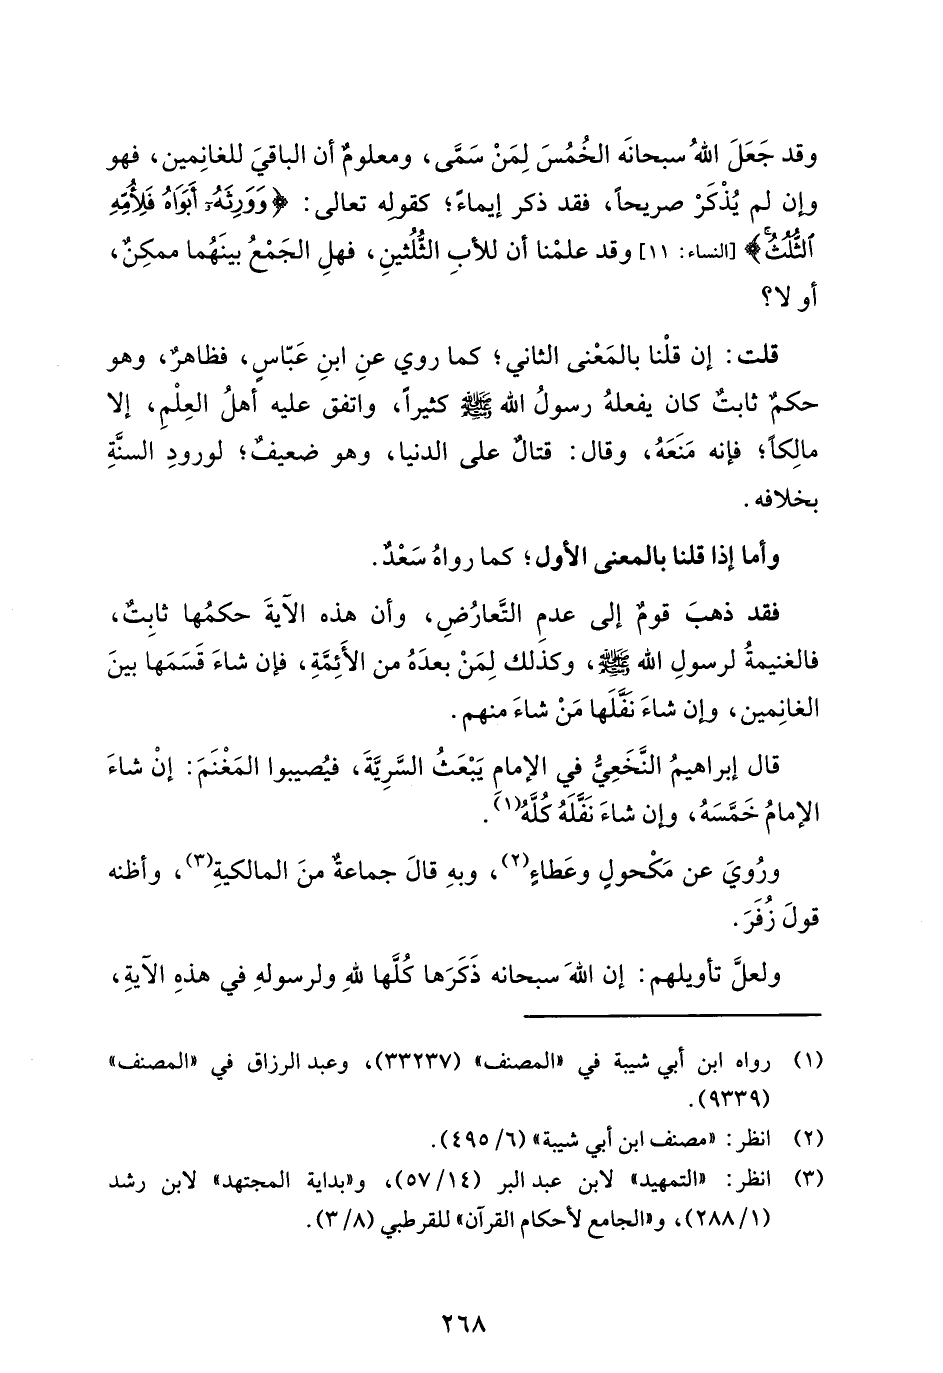 وقد جَعَلَ اللهُ سبحانَه الخُمُسَ لِمَنْ سَمَّى، ومعلومٌ أن الباقيَ للغانِمين، فهو
وإن لم يُذْكَرْ صريحاً، فقد ذكر إيماءً؛ كقولِه تعالى: ﴿وَوَرِثَهُۥٓ أَبَوَاهُ فَلِأُمِّهِ
ٱلثُّلُثُۚ﴾ [النساء: ١١] وقد علمْنا أن للأبِ الثُّلُثينِ، فهلِ الجَمْعُ بينَهُما ممكِنٌ،
أو لا؟
قلت: إن قلْنا بالمَعْنى الثاني؛ كما روي عنِ ابنِ عَبّاسٍ، فظاهرٌ، وهو
حكمٌ ثابتٌ كان يفعلهُ رسولُ الله ﷺ كثيراً، واتفق عليه أهلُ العِلْمِ، إلا
مالِكاً؛ فإنه مَنَعَهُ، وقال: قتالٌ على الدنيا، وهو ضعيفٌ؛ لورودِ السنَّةِ
بخلافه.
وأما إذا قلنا بالمعنى الأول؛ كما رواهُ سَعْدٌ.
فقد ذهبَ قومٌ إلى عدمِ التَّعارُضِ، وأن هذه الآيةَ حكمُها ثابِتٌ،
فالغنيمةُ لرسولِ الله ﷺ، وكذلك لِمَنْ بعدَهُ من الأَئِمَّةِ، فإن شاءَ قَسَمَها بينَ
الغانِمين، وإن شاءَ نَفَّلَها مَنْ شاءَ منهم.
قال إبراهيمُ النَّخَعِيُّ في الإمامِ يَبْعَثُ السَّرِيَّةَ، فيُصيبوا المَغْنَمَ: إنْ شاءَ
الإمامُ خَمَّسَهُ، وإن شاءَ نَفَّلَهُ كُلَّهُ(١).
ورُويَ عن مَكْحولٍ وعَطاءٍ(٢)، وبهِ قالَ جماعةٌ منَ المالكيةِ(٣)، وأظنه
قولَ زُفَرَ.
ولعلَّ تأويلهم: إن اللهَ سبحانه ذَكَرَها كُلَّها للهِ ولرسولهِ في هذهِ الآيةِ،
(١) رواه ابن أبي شيبة في «المصنف» (٣٣٢٣٧)، وعبد الرزاق في «المصنف»
(٩٣٣٩).
(٢) انظر: «مصنف ابن أبي شيبة» (٦/ ٤٩٥).
(٣) انظر: «التمهيد» لابن عبد البر (١٤/ ٥٧)، و«بداية المجتهد» لابن رشد
(١/ ٢٨٨)، و«الجامع لأحكام القرآن» للقرطبي (٨/ ٣).
٢٦٨